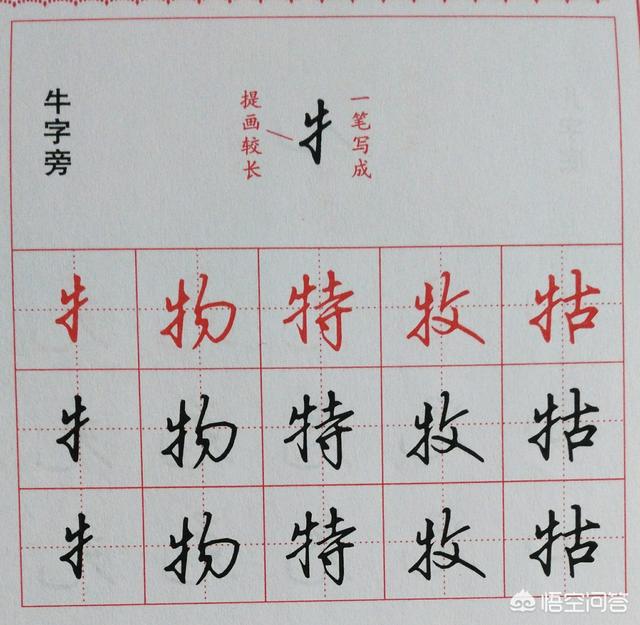 牛字旁
提画较长
牜
一笔写成
牜 物 特 牧 牯
牜 物 特 牧 牯
牜 物 特 牧 牯
悟空问答